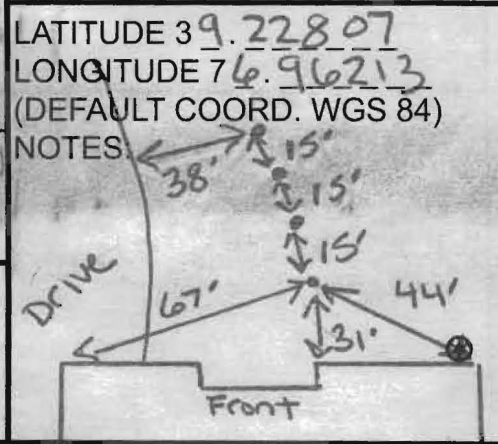 LATITUDE 39.22807
LONGITUDE 76.96213
(DEFAULT COORD. WGS 84)
NOTES:
15'
38'
15'
15'
Drive
67'
44'
31'
Front